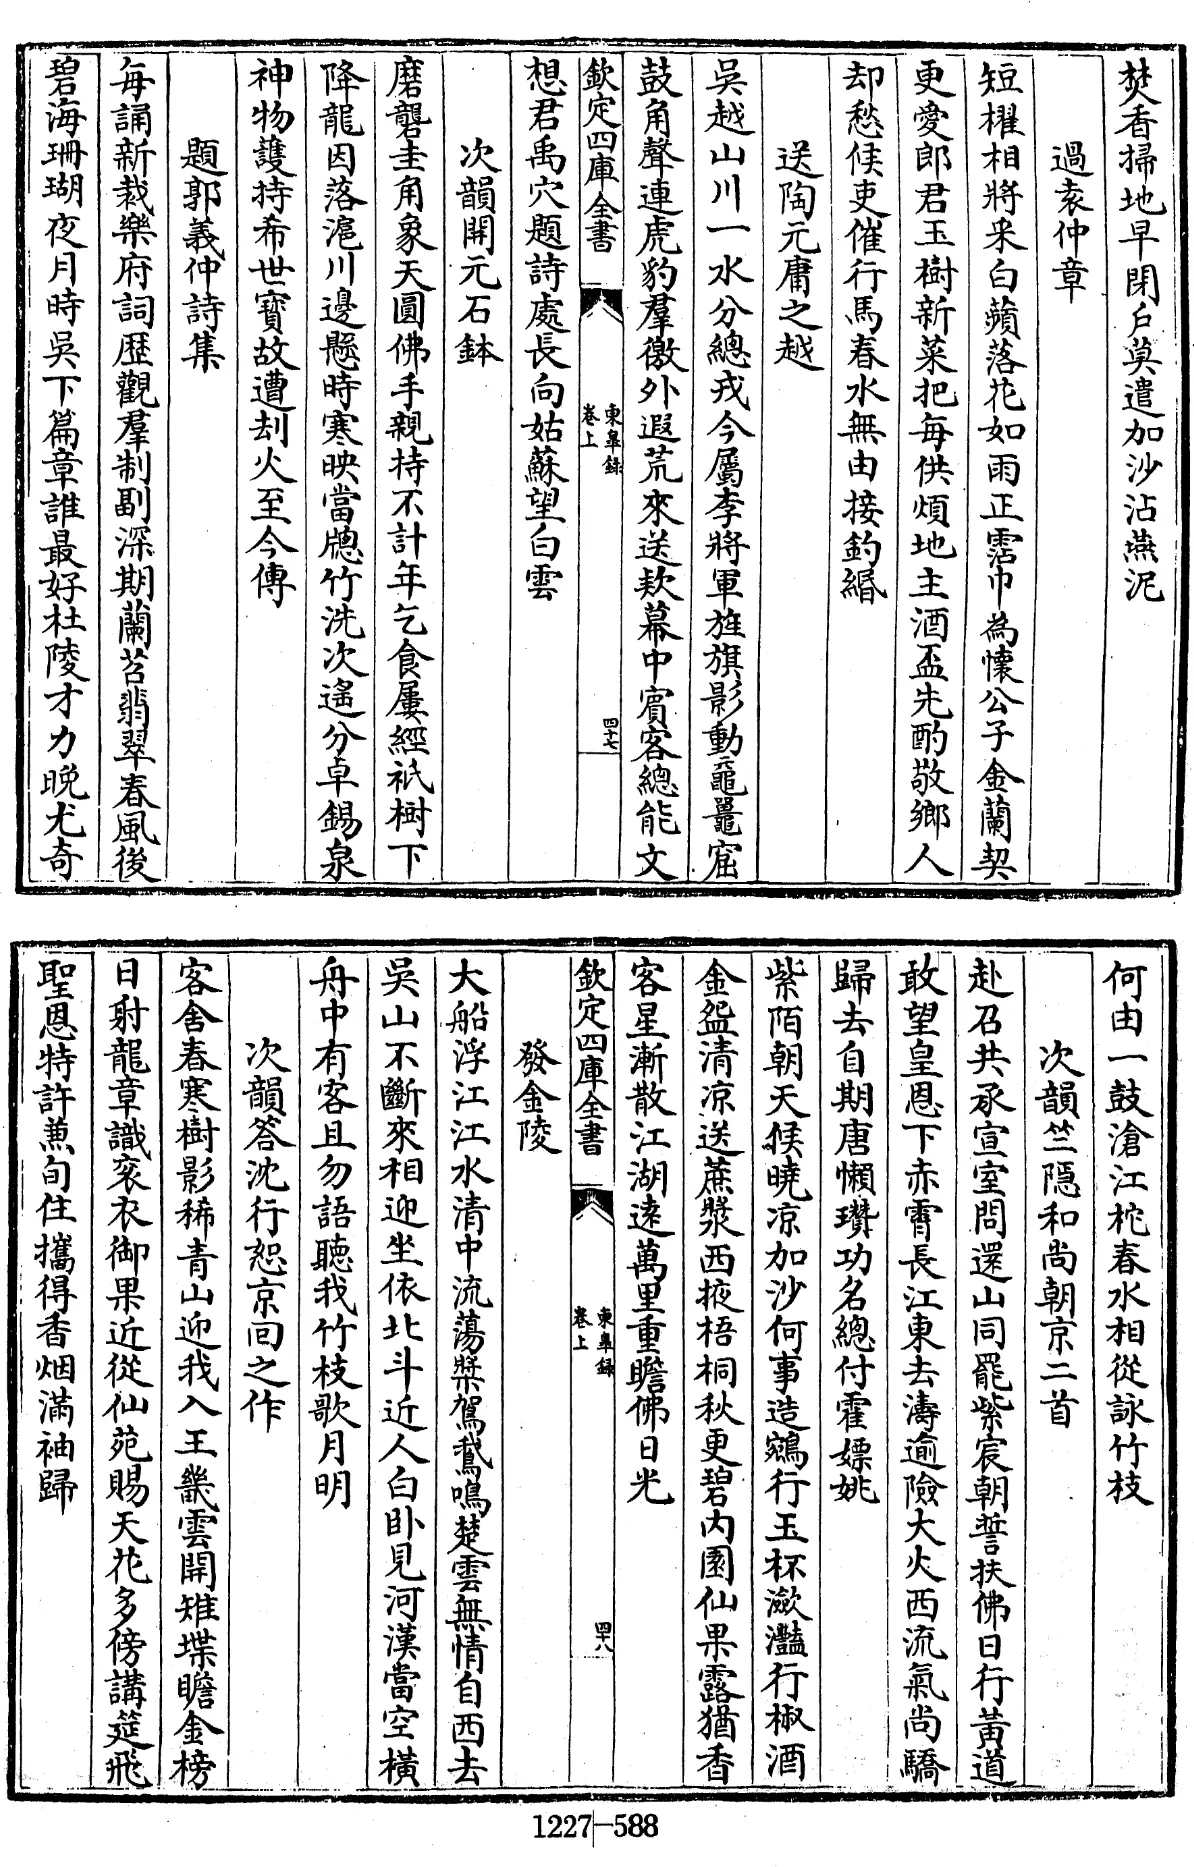 焚香掃地早閉户莫遣加沙沾燕泥
過袁仲章
短櫂相將采白蘋落花如雨正霑巾為懷公子金蘭契
更愛郎君玉樹新菜把每供煩地主酒盃先酌敬鄉人
却愁候吏催行馬春水無由接釣緡
送陶元庸之越
吳越山川一水分總戎今屬李將軍旌旗影動黿鼉窟
鼓角聲連虎豹羣徼外遐荒來送欵幕中賓客總能文
欽定四庫全書
東臯録
卷上
四十七
想君禹穴題詩處長向姑蘇望白雲
次韻開元石鉢
磨礲圭角象天圓佛手親持不計年乞食屢經祇樹下
降龍因落滬川邊懸時寒映當牕竹洗次遙分卓錫泉
神物護持希世寶故遭刦火至今傳
題郭義仲詩集
每誦新裁樂府詞歴觀羣制副深期蘭苕翡翠春風後
碧海珊瑚夜月時吳下篇章誰最好杜陵才力晩尤奇
何由一鼓滄江柁春水相從詠竹枝
次韻竺隠和尚朝京二首
赴召共承宣室問還山同罷紫宸朝誓扶佛日行黃道
敢望皇恩下赤霄長江東去濤逾險大火西流氣尚驕
歸去自期唐懶瓚功名總付霍嫖姚
紫陌朝天候曉凉加沙何事造鵷行玉杯瀲灩行椒酒
金盌清凉送蔗漿西掖梧桐秋更碧内園仙果露猶香
客星漸散江湖遠萬里重瞻佛日光
欽定四庫全書
東臯録
卷上
四十八
發金陵
大船浮江江水清中流蕩槳駕鵞鳴楚雲無情自西去
吳山不斷來相迎坐依北斗近人白卧見河漢當空橫
舟中有客且勿語聽我竹枝歌月明
次韻答沈行恕京囘之作
客舍春寒樹影稀青山迎我入王畿雲開雉堞瞻金榜
日射龍章識衮衣御果近從仙苑賜天花多傍講筵飛
聖恩特許兼旬住攜得香烟滿袖歸
1227-588